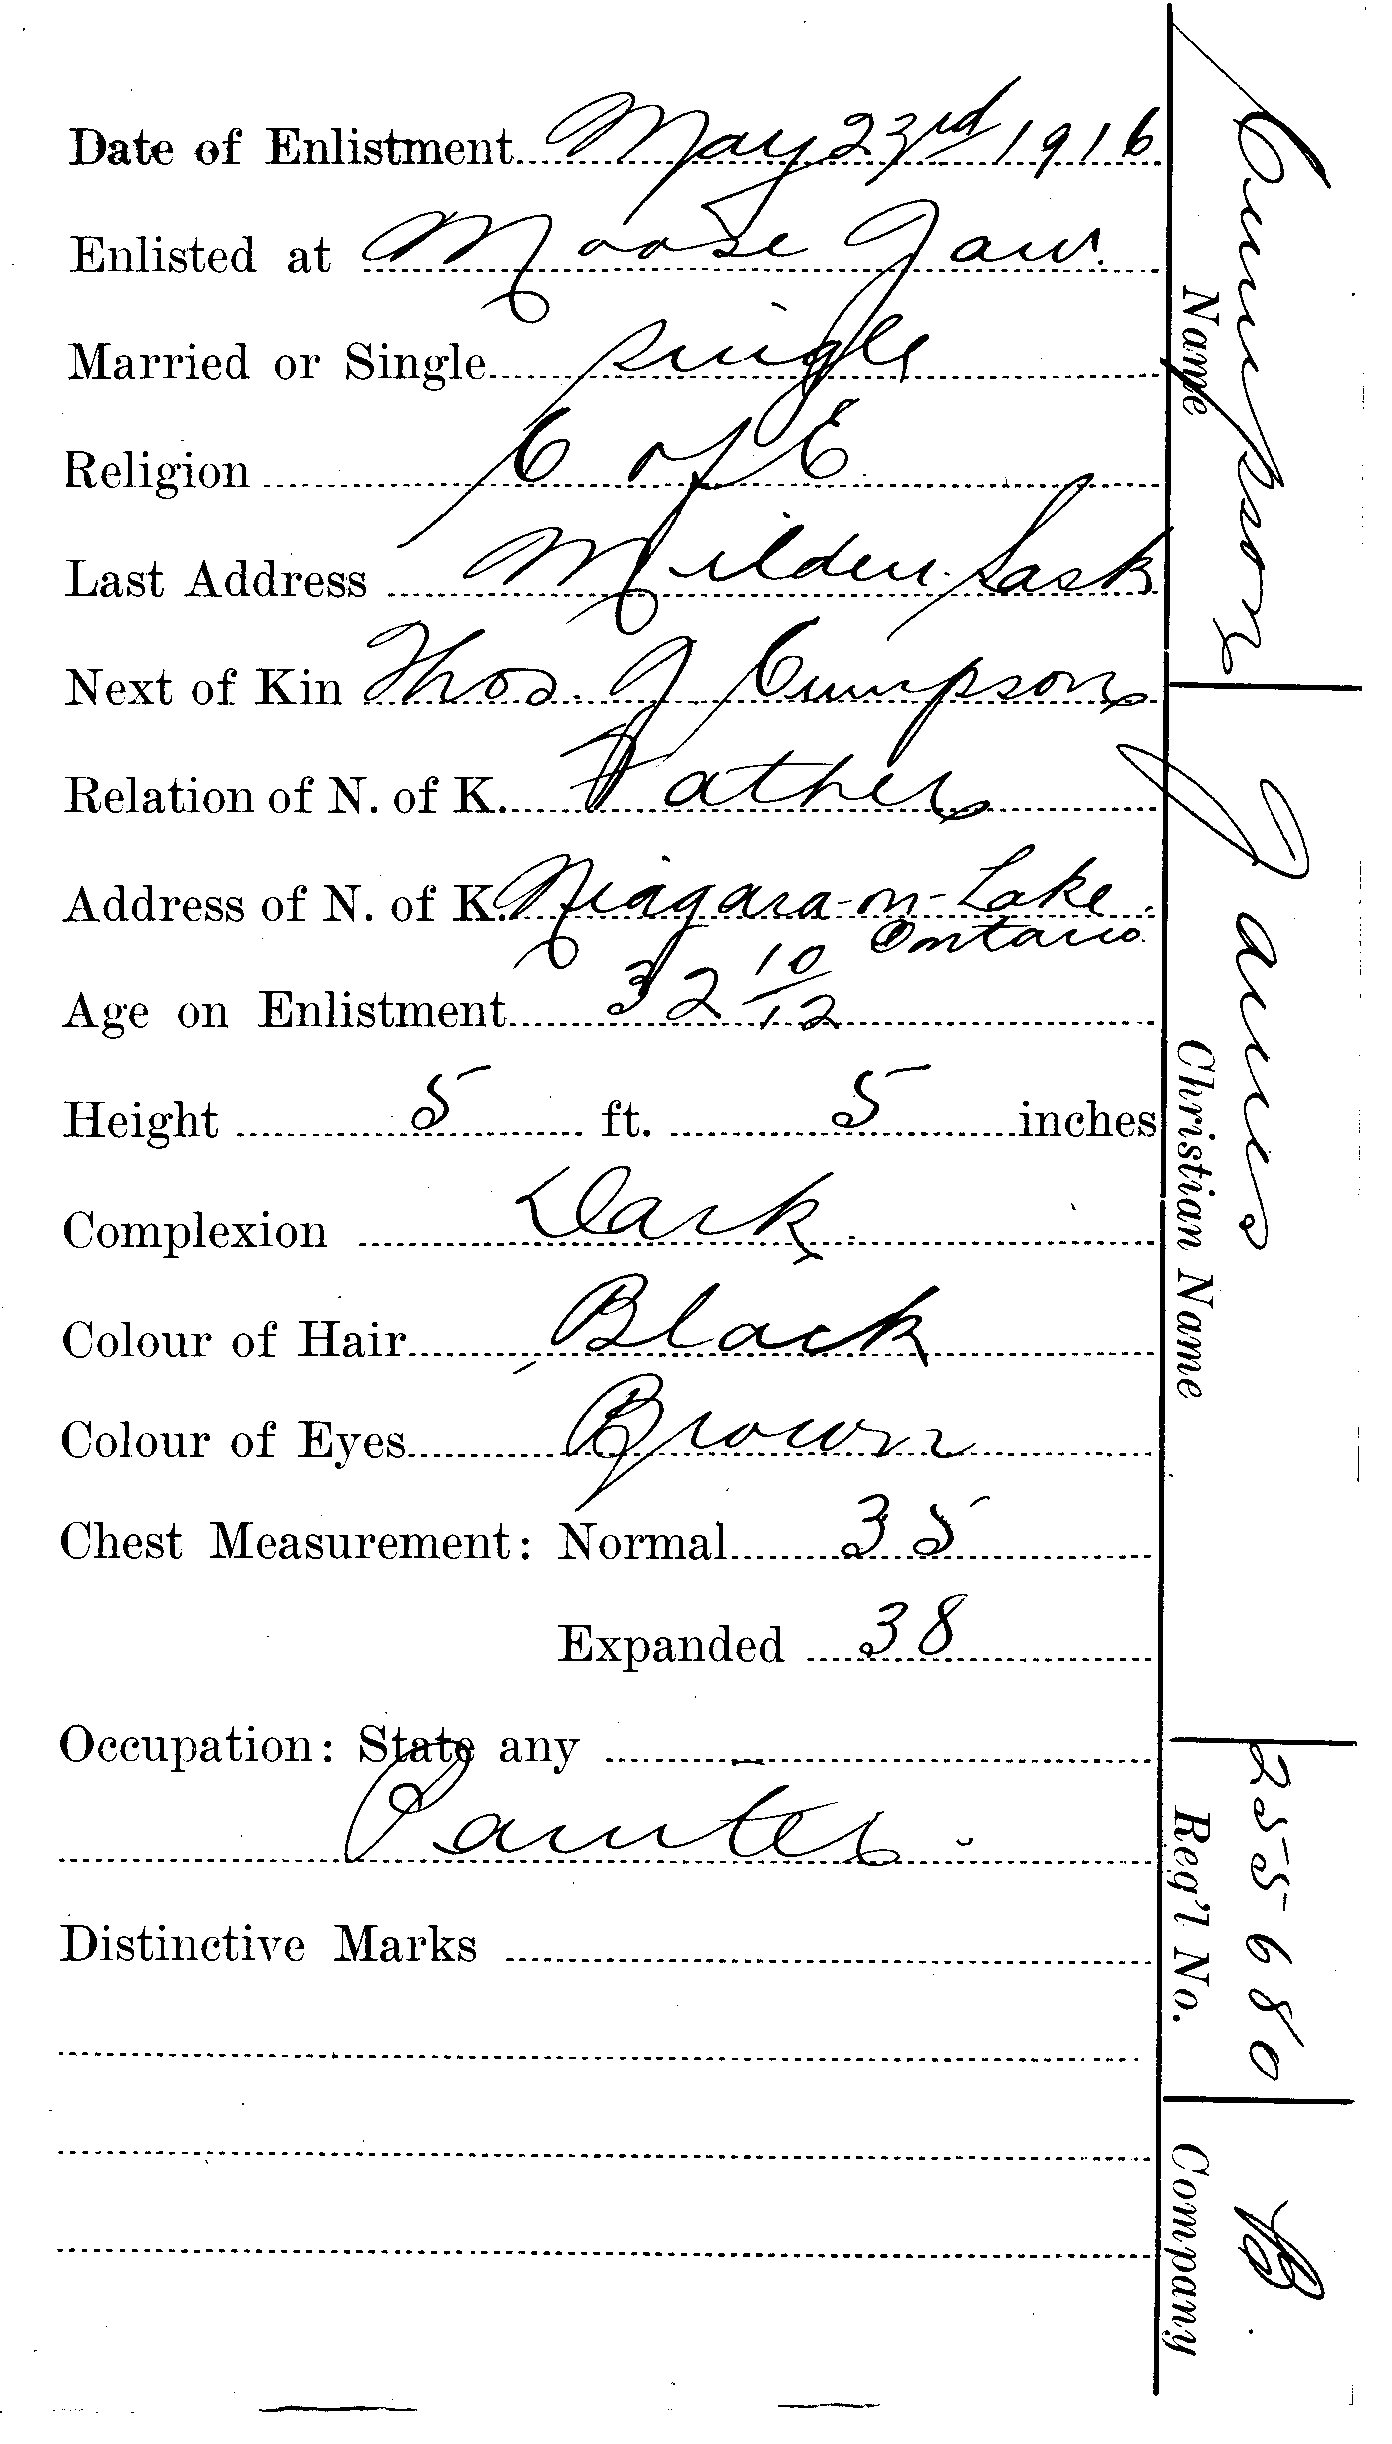 Date of Enlistment May 23rd 1916
Enlisted at Moose Jaw.
Married or Single single
Religion C of E.
Last Address Milden. Sask
Next of Kin Thos. J Cumpson
Relation of N. of K. Father
Address of N. of K. Niagara-on-Lake.
Ontario.
Age on Enlistment 32 10/12
Height 5 ft. 5 inches
Complexion Dark.
Colour of Hair Black
Colour of Eyes Brown
Chest Measurement: Normal 35
Expanded 38
Occupation: State any -
Painter.
Distinctive Marks
Cumpson
Name
James
Christian Name
255680
Reg'l No.
B.
Company